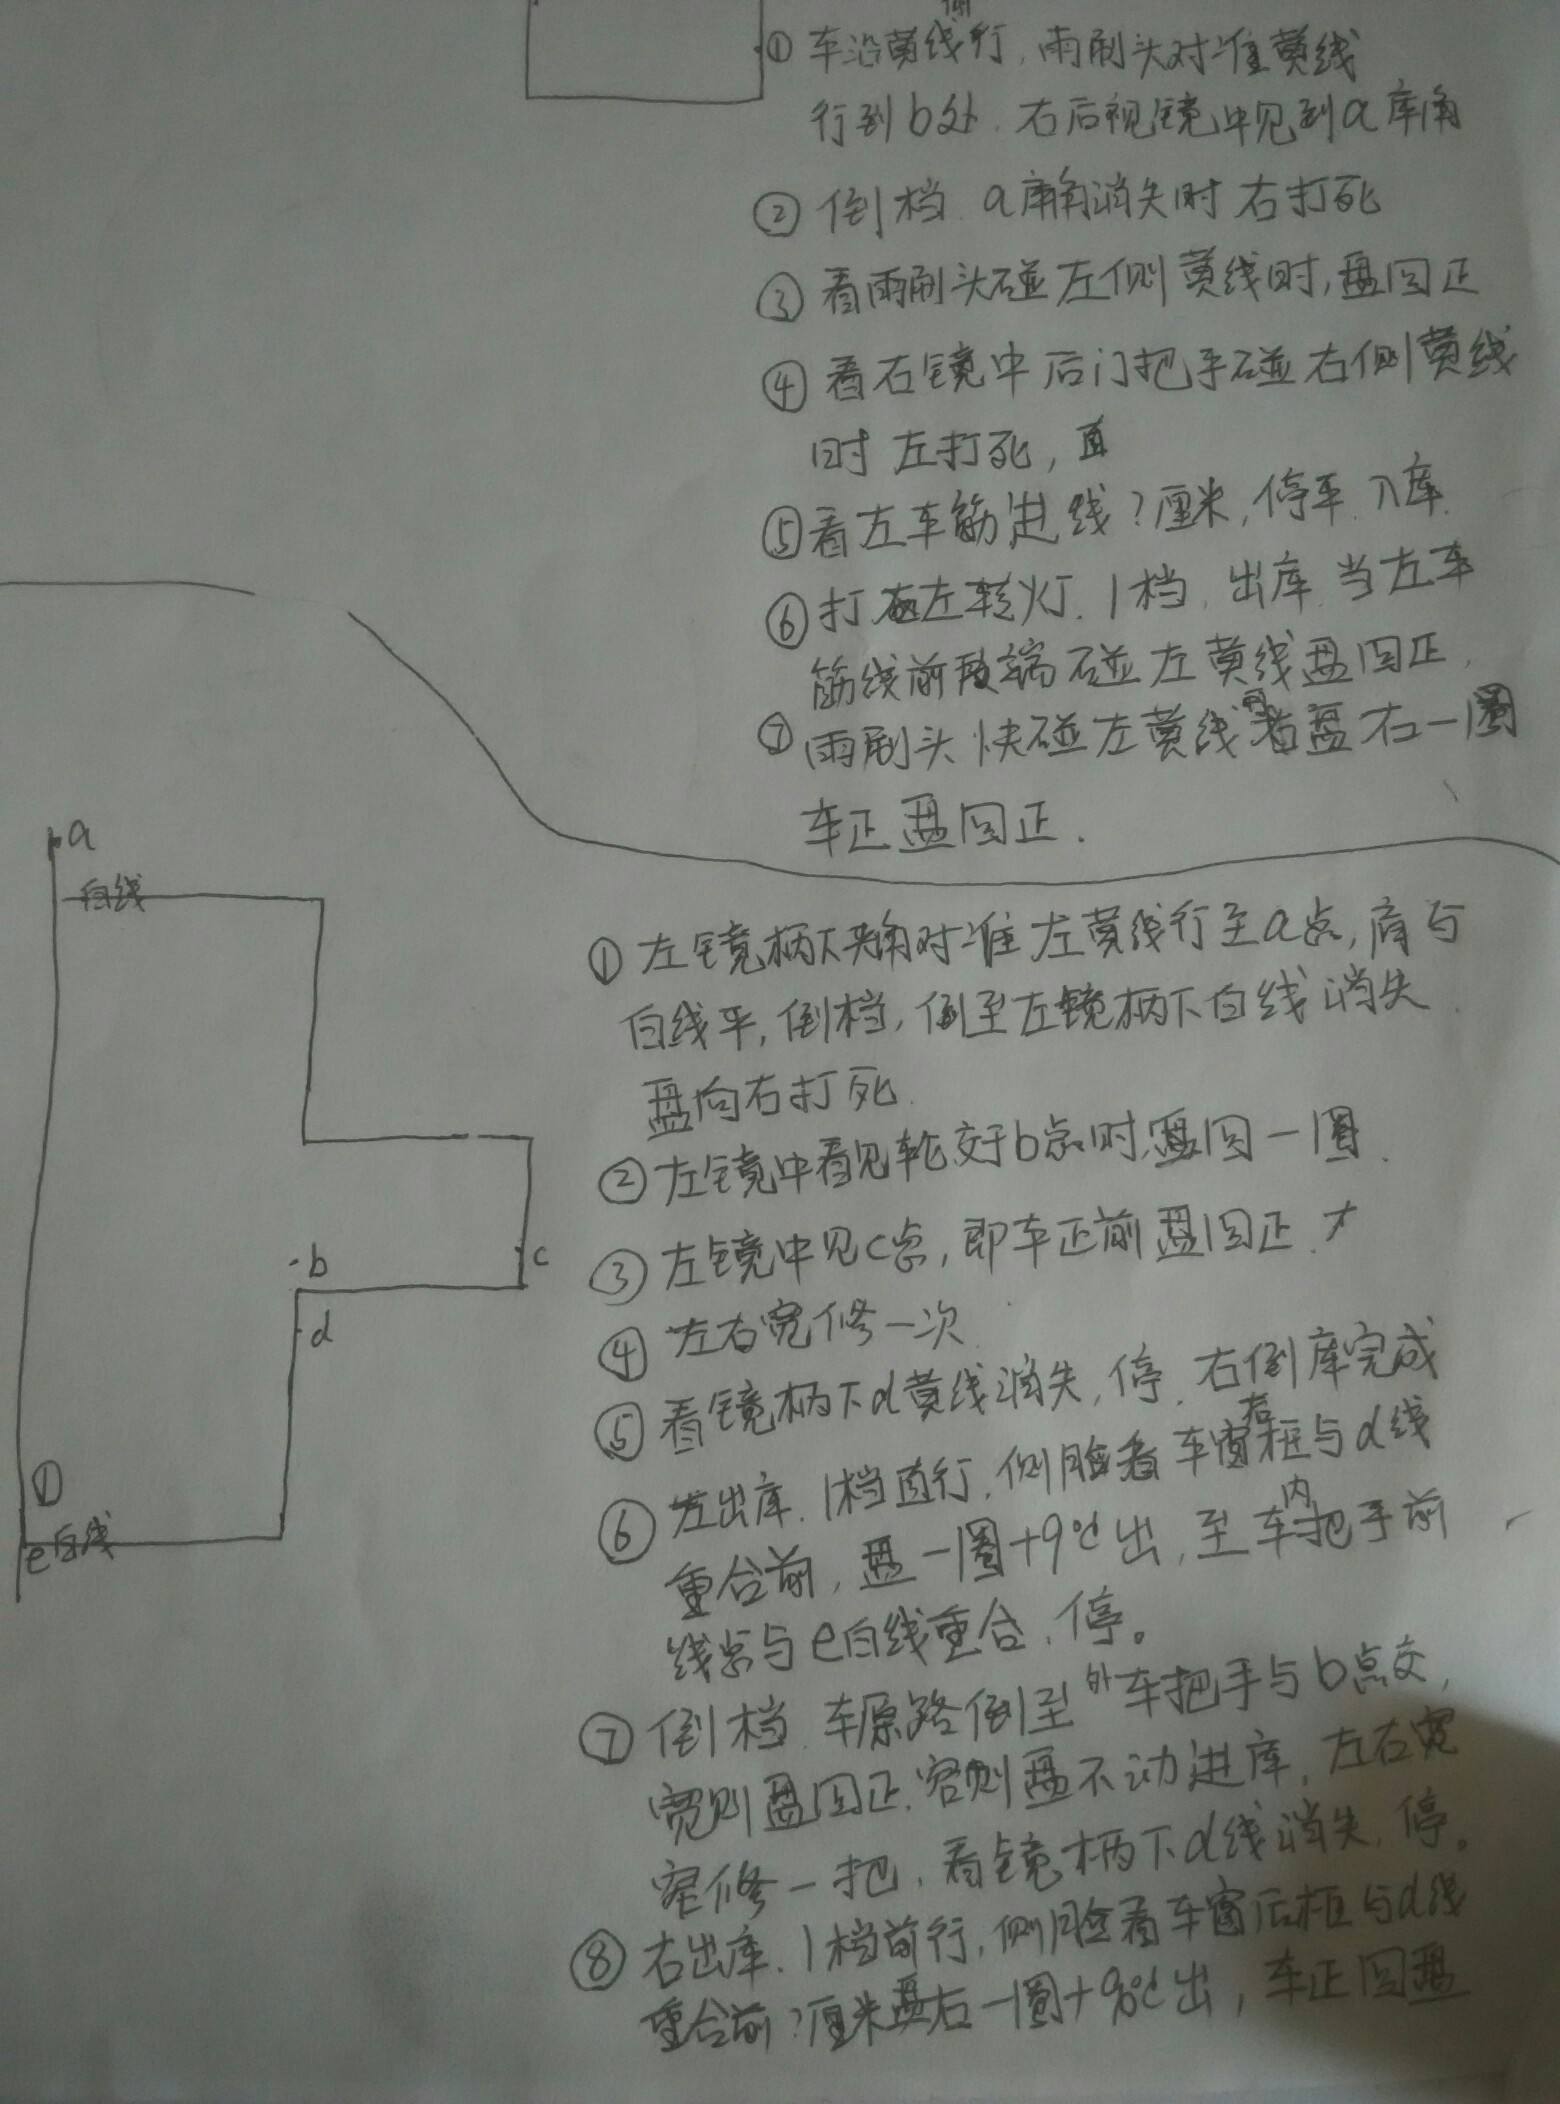 侧
① 车沿黄线行，雨刷头对准黄线
行到b处．右后视镜中见到a库角
② 倒档．a库角消失时右打死
③ 看雨刷头碰左侧黄线时，盘回正
④ 看右镜中后门把手碰右侧黄线
时左打死，直
⑤ 看左车筋进线？厘米，停车．入库．
⑥ 打左转灯．1档．出库．当左车
筋线前端碰左黄线盘回正．
⑦ 雨刷头快碰左黄线盘右一圈
车正盘回正．
a
白线
① 左镜柄下夹角对准左黄线行至a点，肩与
白线平，倒档，倒至左镜柄下白线消失．
盘向右打死．
② 左镜中看见轮交于b点时，盘回一圈．
③ 左镜中见c点，即车正前盘回正．
b
c
d
④ 左右宽修一次
⑤ 看镜柄下d黄线消失，停．右倒库完成
⑥ 左出库．1档直行，侧脸看车窗后框与d线
重合前，盘一圈+9°出，至车内把手前
线点与e白线重合，停。
①
e白线
⑦ 倒档．车原路倒至外车把手与b点交，
宽则盘回正．窄则盘不动进库，左右宽
窄修一把，看镜柄下d线消失，停。
⑧ 右出库．1档前行，侧脸看车窗后框与d线
重合前？厘米盘右一圈+90°出，车正回盘